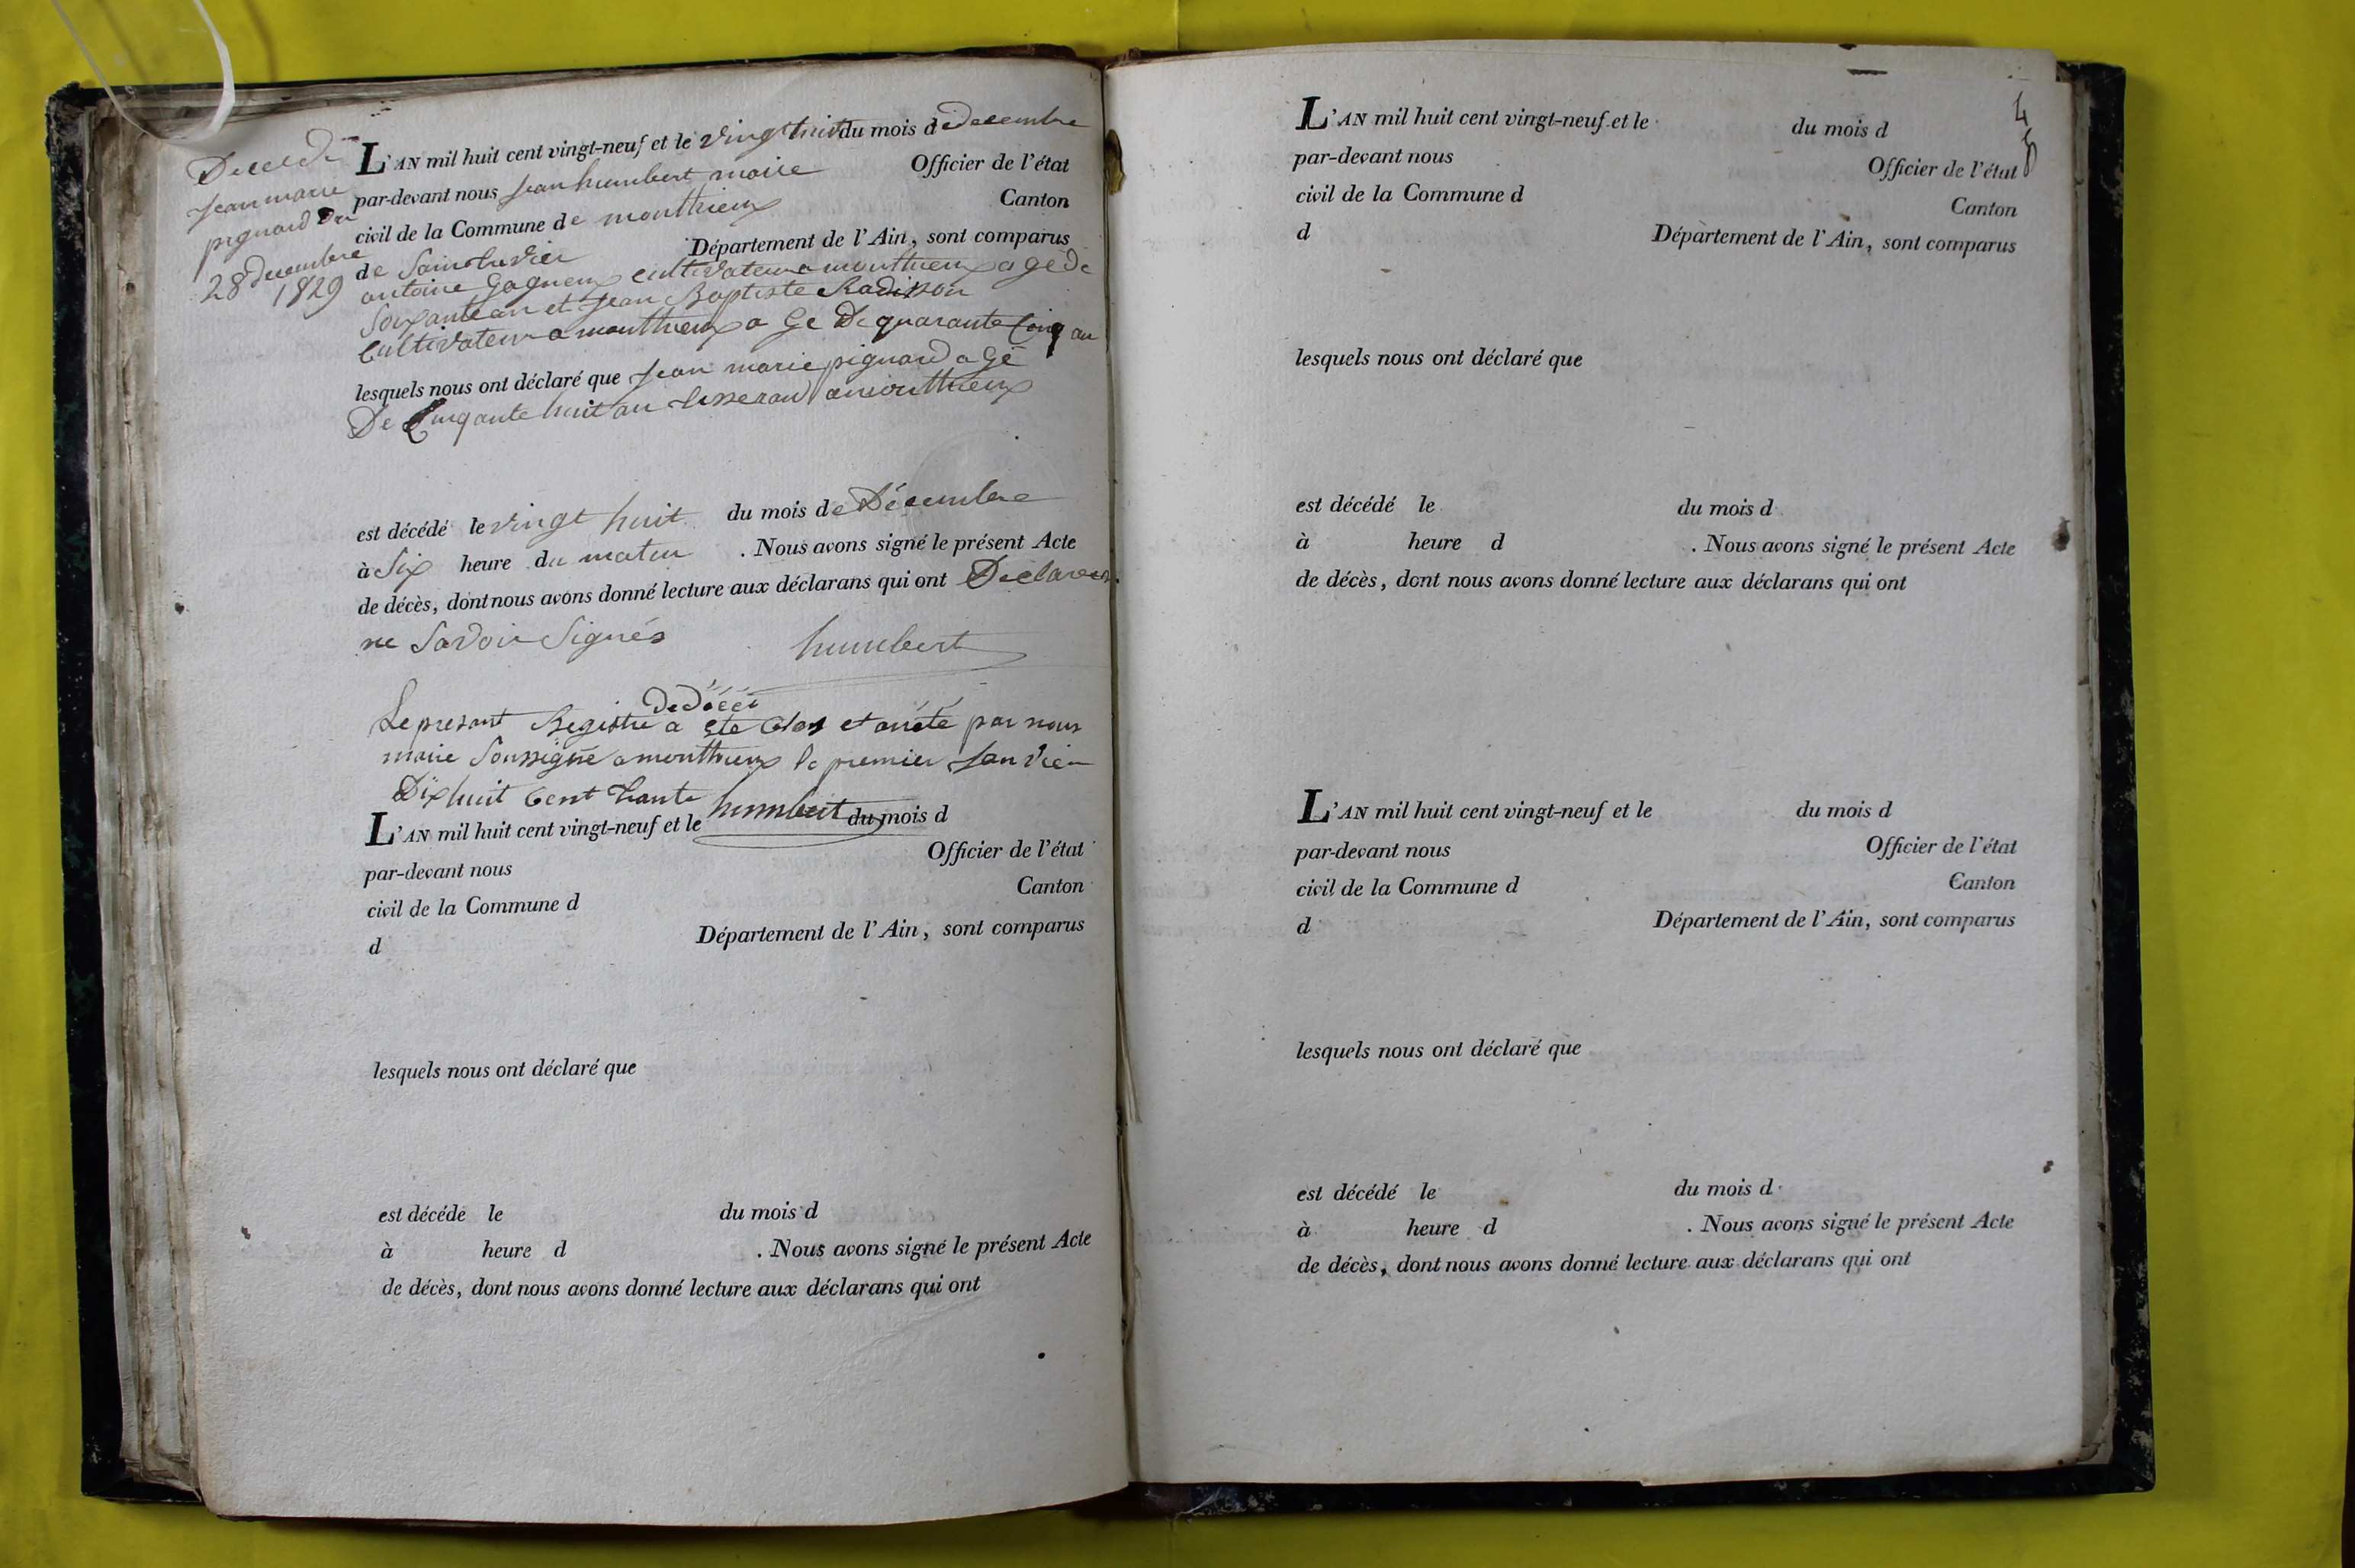 Deced de
jean marie
pignard Du
28 decembre
1829
L'AN mil huit cent vingt-neuf et le vingt huit du mois de decembre
par-devant nous jean humbert maire Officier de l'état
civil de la Commune de monthieux Canton
de Saint trivier Département de l'Ain, sont comparus
antoine Gagneux cultivateur a monthieux a ge de
soixante an et jean Baptiste Radisson
Cultivateur a monthieux a Ge De quarante Cinq an
lesquels nous ont déclaré que jean marie pignard a Gé
De Cinqante huit an tisserand a monthieux
est décédé le vingt huit du mois de Décembre
à Six heure du matin . Nous avons signé le présent Acte
de décès, dont nous avons donné lecture aux déclarans qui ont Declarer
ne Savoir Signés humbert
De Décét
Le presant Registre a ete Clos et arrete par nous
maire Soussigné a monthieux le premier janvier
Dix huit Cent trante humbert
L'AN mil huit cent vingt-neuf et le du mois d
par-devant nous Officier de l'état
civil de la Commune d Canton
d Département de l'Ain, sont comparus
lesquels nous ont déclaré que
est décédé le du mois d
à heure d . Nous avons signé le présent Acte
de décès, dont nous avons donné lecture aux déclarans qui ont
L'AN mil huit cent vingt-neuf et le du mois d
par-devant nous Officier de l'état
civil de la Commune d Canton
d Département de l'Ain, sont comparus
lesquels nous ont déclaré que
est décédé le du mois d
à heure d . Nous avons signé le présent Acte
de décès, dont nous avons donné lecture aux déclarans qui ont
L'AN mil huit cent vingt-neuf et le du mois d
par-devant nous Officier de l'état
civil de la Commune d Canton
d Département de l'Ain, sont comparus
lesquels nous ont déclaré que
est décédé le du mois d
à heure d . Nous avons signé le présent Acte
de décès, dont nous avons donné lecture aux déclarans qui ont